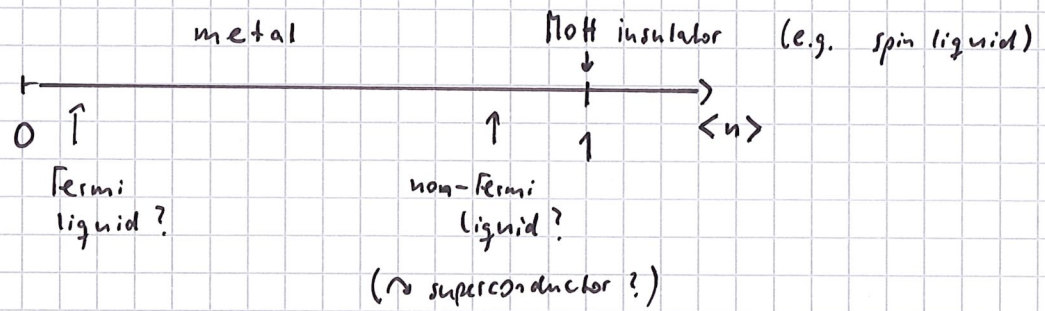 metal Mott insulator (e.g. spin liquid)
0 1 <n>
Fermi non-Fermi
liquid? liquid?
(↝ superconductor?)